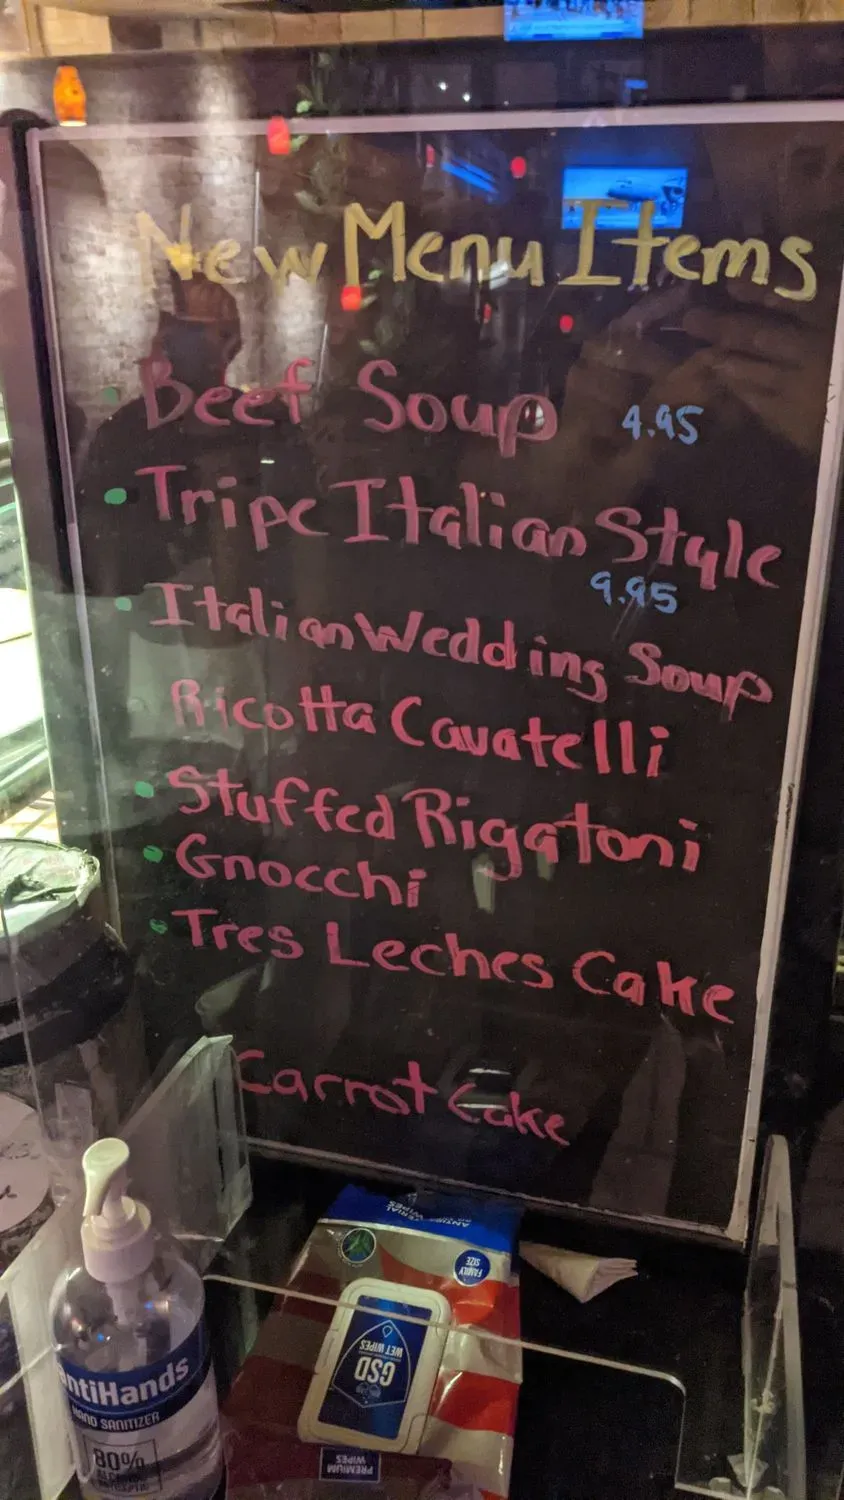 New Menu Items
Beef Soup 4.95
Tripe Italian Style
9.95
Italian Wedding Soup
Ricotta Cavatelli
Stuffed Rigatoni
Gnocchi
Tres Leches Cake
Carrot Cake
WIPES
FAMILY
SIZE
GSD
WET WIPES
PREMIUM
WIPES
antiHands
HAND SANITIZER
80%